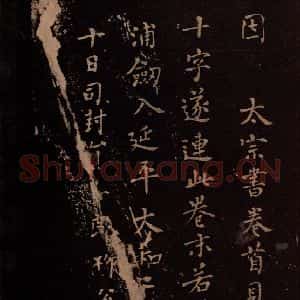 因 太宗書卷首見
十字遂連此卷末若
浦劔入延平太和二
十日司封
Shufawang.CN